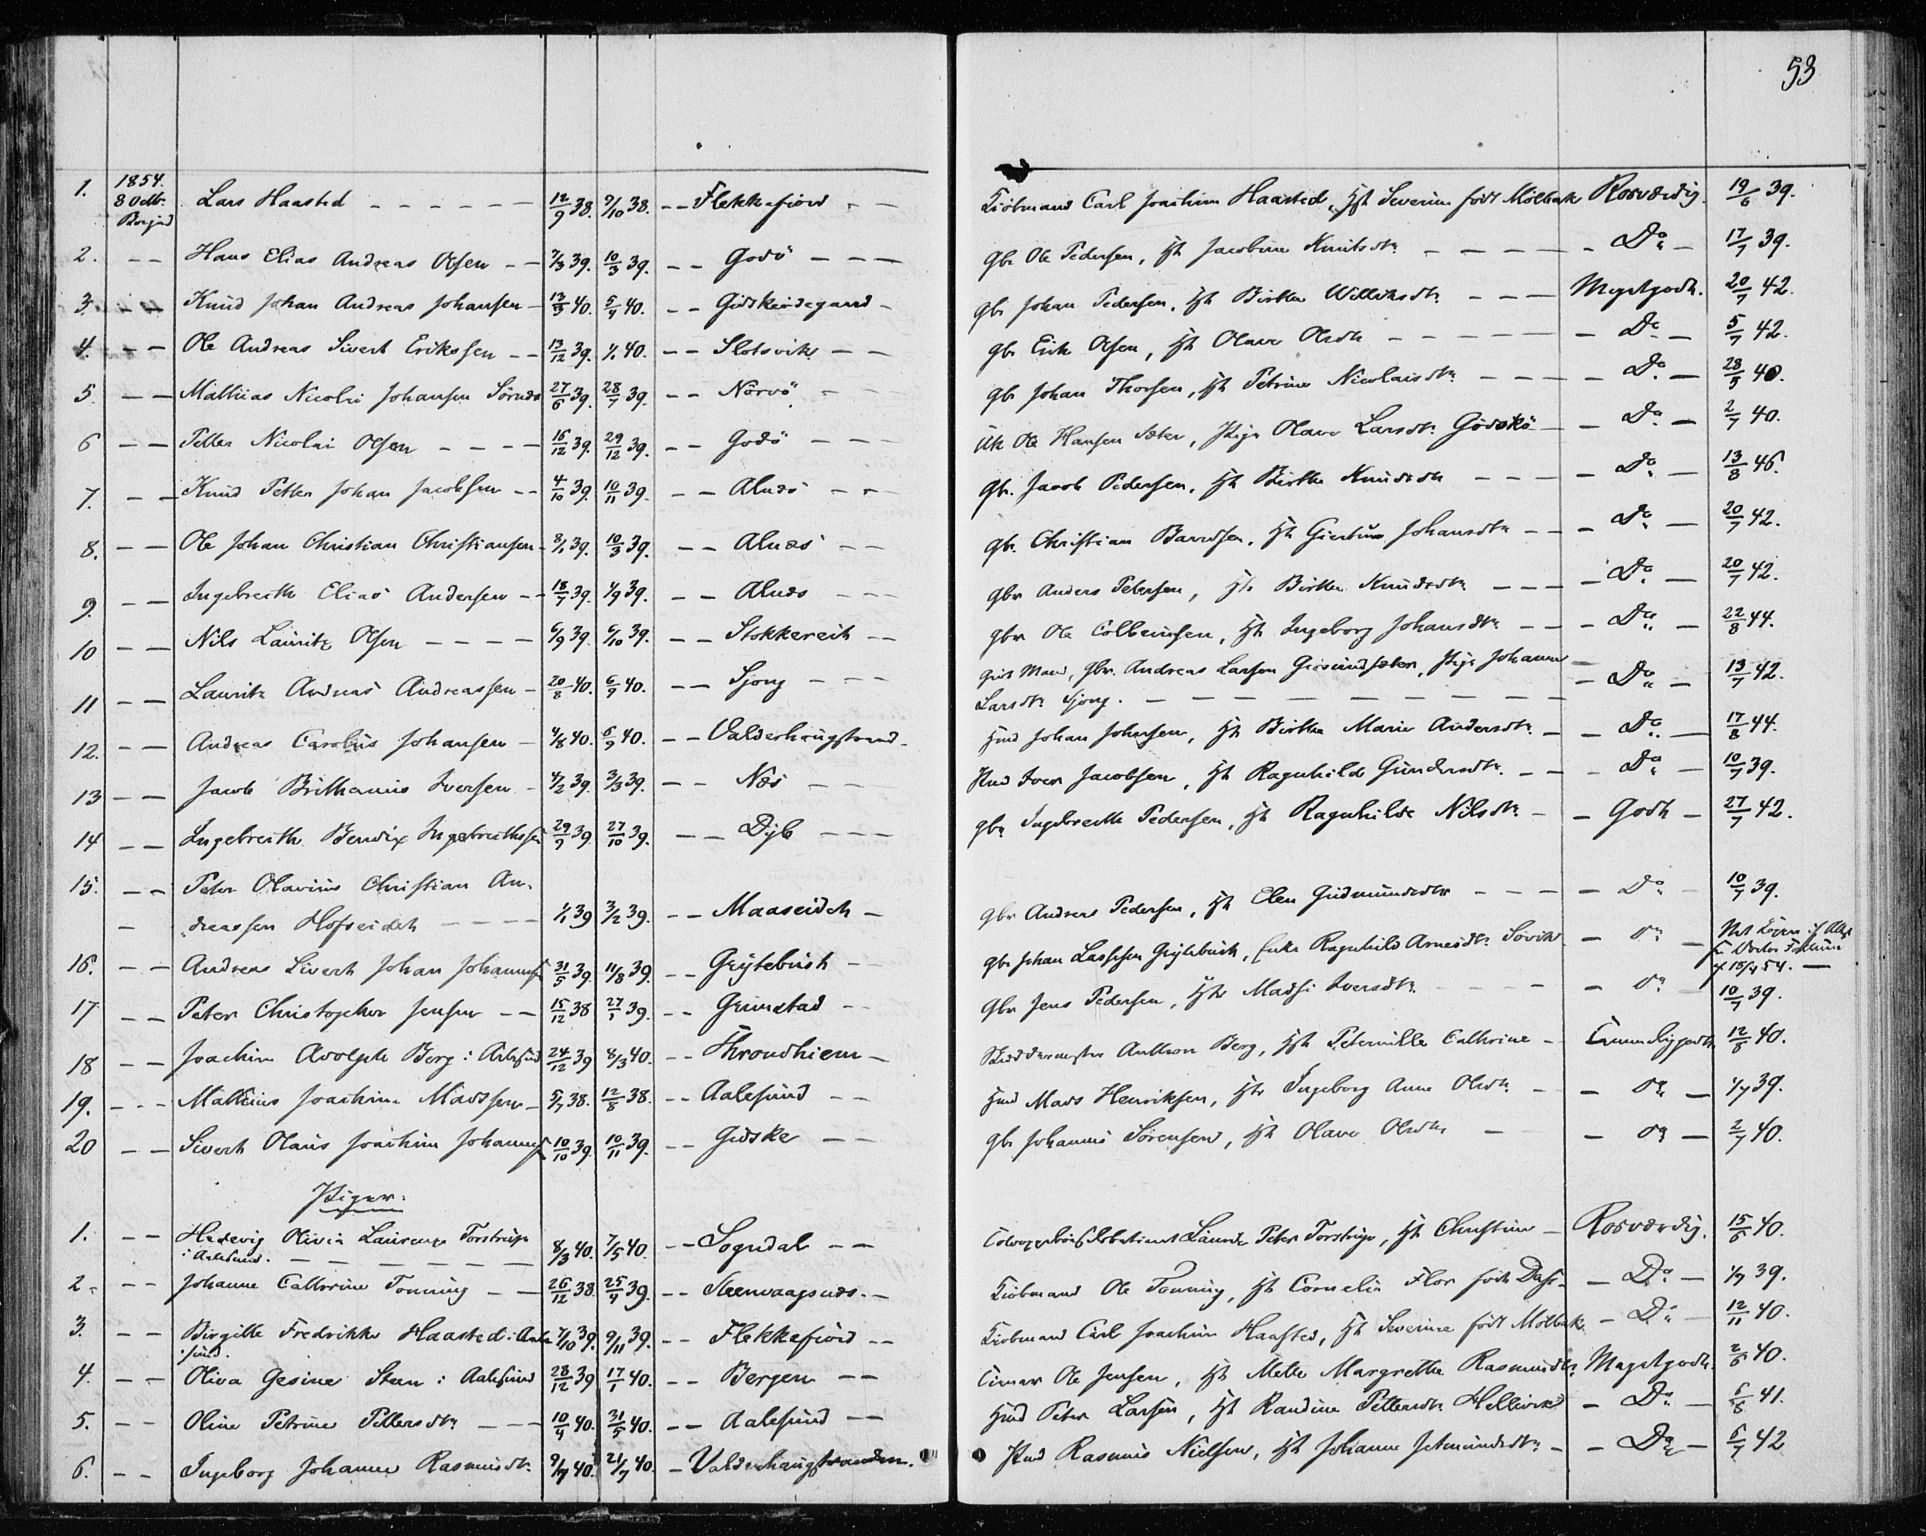 53
1. 1854. 8 Octb. Borgund Lars Haasted - - - - - - 12/9 38. 9/10 38. - - Flekkefiord - - Kiöbmand Carl Joachim Haasted, Hst Severine född Mölbak Rosværdig. 19/6 39.
2. - - Hans Elias Andreas Olsen - - 7/3 39. 10/3 39. - - Godö - - - Gbr Ole Pedersen, Ht Jacobine Knutsdtr - - - - Do - 17/7 39.
3. - - Knud Johan Andreas Johansen - 13/3 40. 5/4 40. - - Gidskeödegaard - Gbr Johan Pedersen, Ht Birthe Williksdtr - - - Megetgodt. 20/7 42.
4. - - Ole Andreas Sivert Erikssen - - 13/12 39. 1/1 40. - - Slotsvik - - Gbr Erik Olsen, Ht Olave Olsdtr - - - - - Do - 5/7 42.
5. - - Mathias Nicolai Johansen Sörnes 27/6 39. 28/7 39. - - Nörvö - - Gbr Johan Thorsen, Ht Petrine Nicolaisdtr - - - - Do - 28/5 40.
6 - - Petter Nicolai Olsen - - - - 15/12 39. 29/12 39. - - Godö - - - Uk Ole Hansen Sæter, Pige Olave Larsdtr Gidskö - - Do - 2/7 40.
7. - - Knud Petter Johan Jacobsen - - 4/10 39. 10/11 39. - - Alnæs - - - Gbr. Jacob Pedersen, Ht Birthe Knudsdtr - - - - Do - 13/8 46.
8. - - Ole Johan Christian Christiansen - 8/1 39. 10/3 39. - - Alnæs - - Gbr. Christian Baardsen, Ht Giertine Johansdtr - - - Do - 20/7 42.
9. - - Ingebreth Elias Andersen - - 18/7 39. 4/9 39. - - Alnæs - - - Gbr Anders Petersen, Ht Birthe Knudsdtr - - - - Do - 20/7 42.
10 - - Nils Lauritz Olsen - - - - 6/9 39. 6/10 39. - - Stokkereit - - Gbr Ole Colbeinsen, Ht Ingeborg Johansdtr - - - Do - 22/8 44.
11 - - Lauritz Andreas Andreassen - 20/8 40. 6/9 40. - - Sjong - - - Gift Mand, Gbr. Andreas Larsen Giesundsæter, Pige Johanne
Larsdtr Sjong. - - - - - - - - - Do - 13/7 42.
12. - - Andreas Carolus Johansen - 4/8 40. 6/9 40. - - Valderhaugstrand - Hmd Johan Johnsen, Ht Birthe Marie Andersdtr - - Do - 17/8 44.
13 - - Jacob Brithanius Iversen - 4/2 39. 3/3 39. - - Næs - - Hmd Iver Jacobsen, Ht Ragnhild Gundersdtr. - - - Do - 10/7 39.
14 - - Ingebreth Bendix Ingebrethsen 29/9 39 27/10 39. - - Dyb - - - Gbr Ingebreth Pedersen, Ht Ragnhilde Nilsdtr - - Godt - 27/7 42.
15. - - Peter Olavius Christian An-
- dreassen Hofseideth - - - - 1/1 39 3/2 39. - - Maaseideh - Gbr Andreas Pedersen, Ht Elen Gudmundsdtr - - - - Do - 10/7 39.
16. - - Andreas Sivert Johan Johannesen 31/5 39. 11/8 39. - - Grytebust - - Gbr Johan Lassesen Grytebust, Enke Ragnhild Arnesdtr Sövik - do -
af 18/4 54. -
17 - - Peter Christopher Jensen - - 15/12 38 27/1 39. - - Grimstad - - Gbr Jens Pedersen, Ht Madsi Iversdtr - - - - - do 10/7 39.
18 - - Joachim Adolph Berg i Aalesund 24/12 39 8/3 40. - - Throndhiem - Skreddermester Anthon Berg, Hst Peternille Cathrine - Temmeliggodt 12/8 40.
19. - - - Mathias Joachim Madssen - 5/7 38. 12/8 38. - - Aalesund - - Hmd Mads Henriksen, Ht Ingeborg Anne Olsdtr - - do - 1/7 39.
20 - - Sivert Olaus Joachim Johannesen 10/10 39. 10/11 39. - - Gidske - - Gbr Johannes Sörensen, Ht Olave Olsdtr - - do - 2/7 40.
Piger.
1. - - Hedevig Olivia Laurenze Forstrup
i Aalesund. - - - - - - 8/3 40. 7/5 40 - - Sogndal - - Peter Forstrup, Ht Christine - Rosværdig. 15/6 40.
2 - - - Johanne Cathrine Tonning - - 26/12 38. 25/4 39. - - Steenvaagnæs. - Kiöbmand Ole Tonning, Ht Cornelia Flor född Dahl - - Do - 1/7 39.
3. - - Birgitte Fredrikke Haasted i Aale-
sund. 7/10 39. 9/11 39. - - Flekkefiord - - Kiöbmand Carl Joachim Haasted, Ht Severine född Mölbak - Do - 12/11 40.
4. - - Oliva Gesine Steen i Aalesund 28/12 39 17/1 40. - - Bergen - - Timmer Ole Jensen, Ht Mette Margrethe Rasmusdtr. Megetgodt. 2/6 40.
5. - - Oline Petrine Pettersdtr - - - 10/4 40. 31/5 40. - - Aalesund - - Hmd Peter Larsen, Ht Randine Pettersdtr Hellevik - Do - 6/8 41.
6. - - Ingeborg Johanne Rasmusdtr 9/7 40. 21/7 40. - Valderhaugstranden. Hmd Rasmus Nielsen, Ht Johanne Jetmundsdtr - - Do - 6/7 42